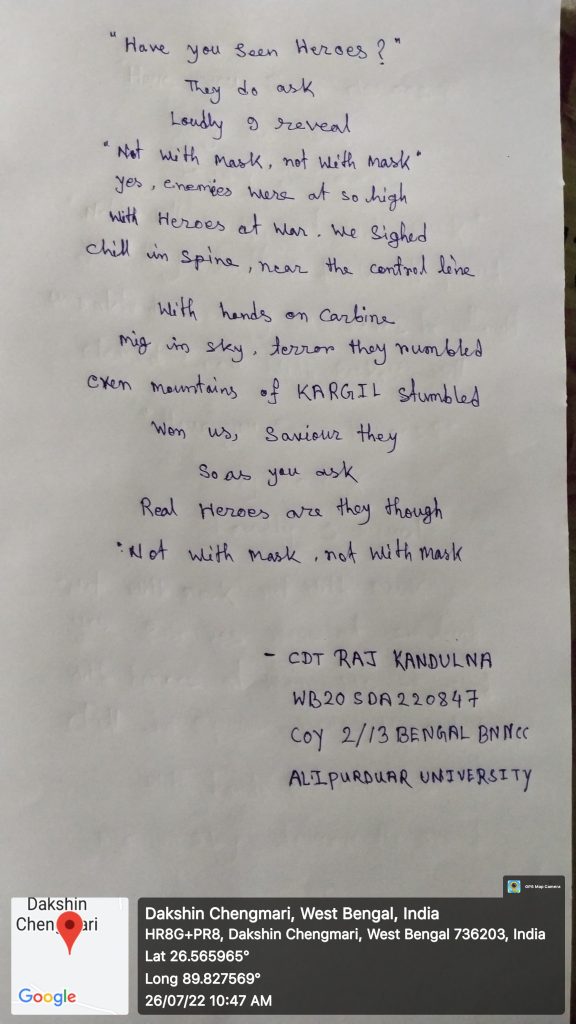 "Have you seen Heroes?"
They do ask
Loudly I reveal
"Not with mask, not with mask"
yes, enemies were at so high
with Heroes at war. We sighed
chill in spine, near the control line
With hands on carbine
mig in sky, terror they rumbled
even mountains of KARGIL stumbled
Won us, Saviour they
So as you ask
Real Heroes are they though
"Not with mask, not with mask
- CDT RAJ KANDULNA
WB20SDA220847
COY 2/13 BENGAL BN NCC
ALIPURDUAR UNIVERSITY
GPS Map Camera
Dakshin
Chengmari
Google
Dakshin Chengmari, West Bengal, India
HR8G+PR8, Dakshin Chengmari, West Bengal 736203, India
Lat 26.565965°
Long 89.827569°
26/07/22 10:47 AM